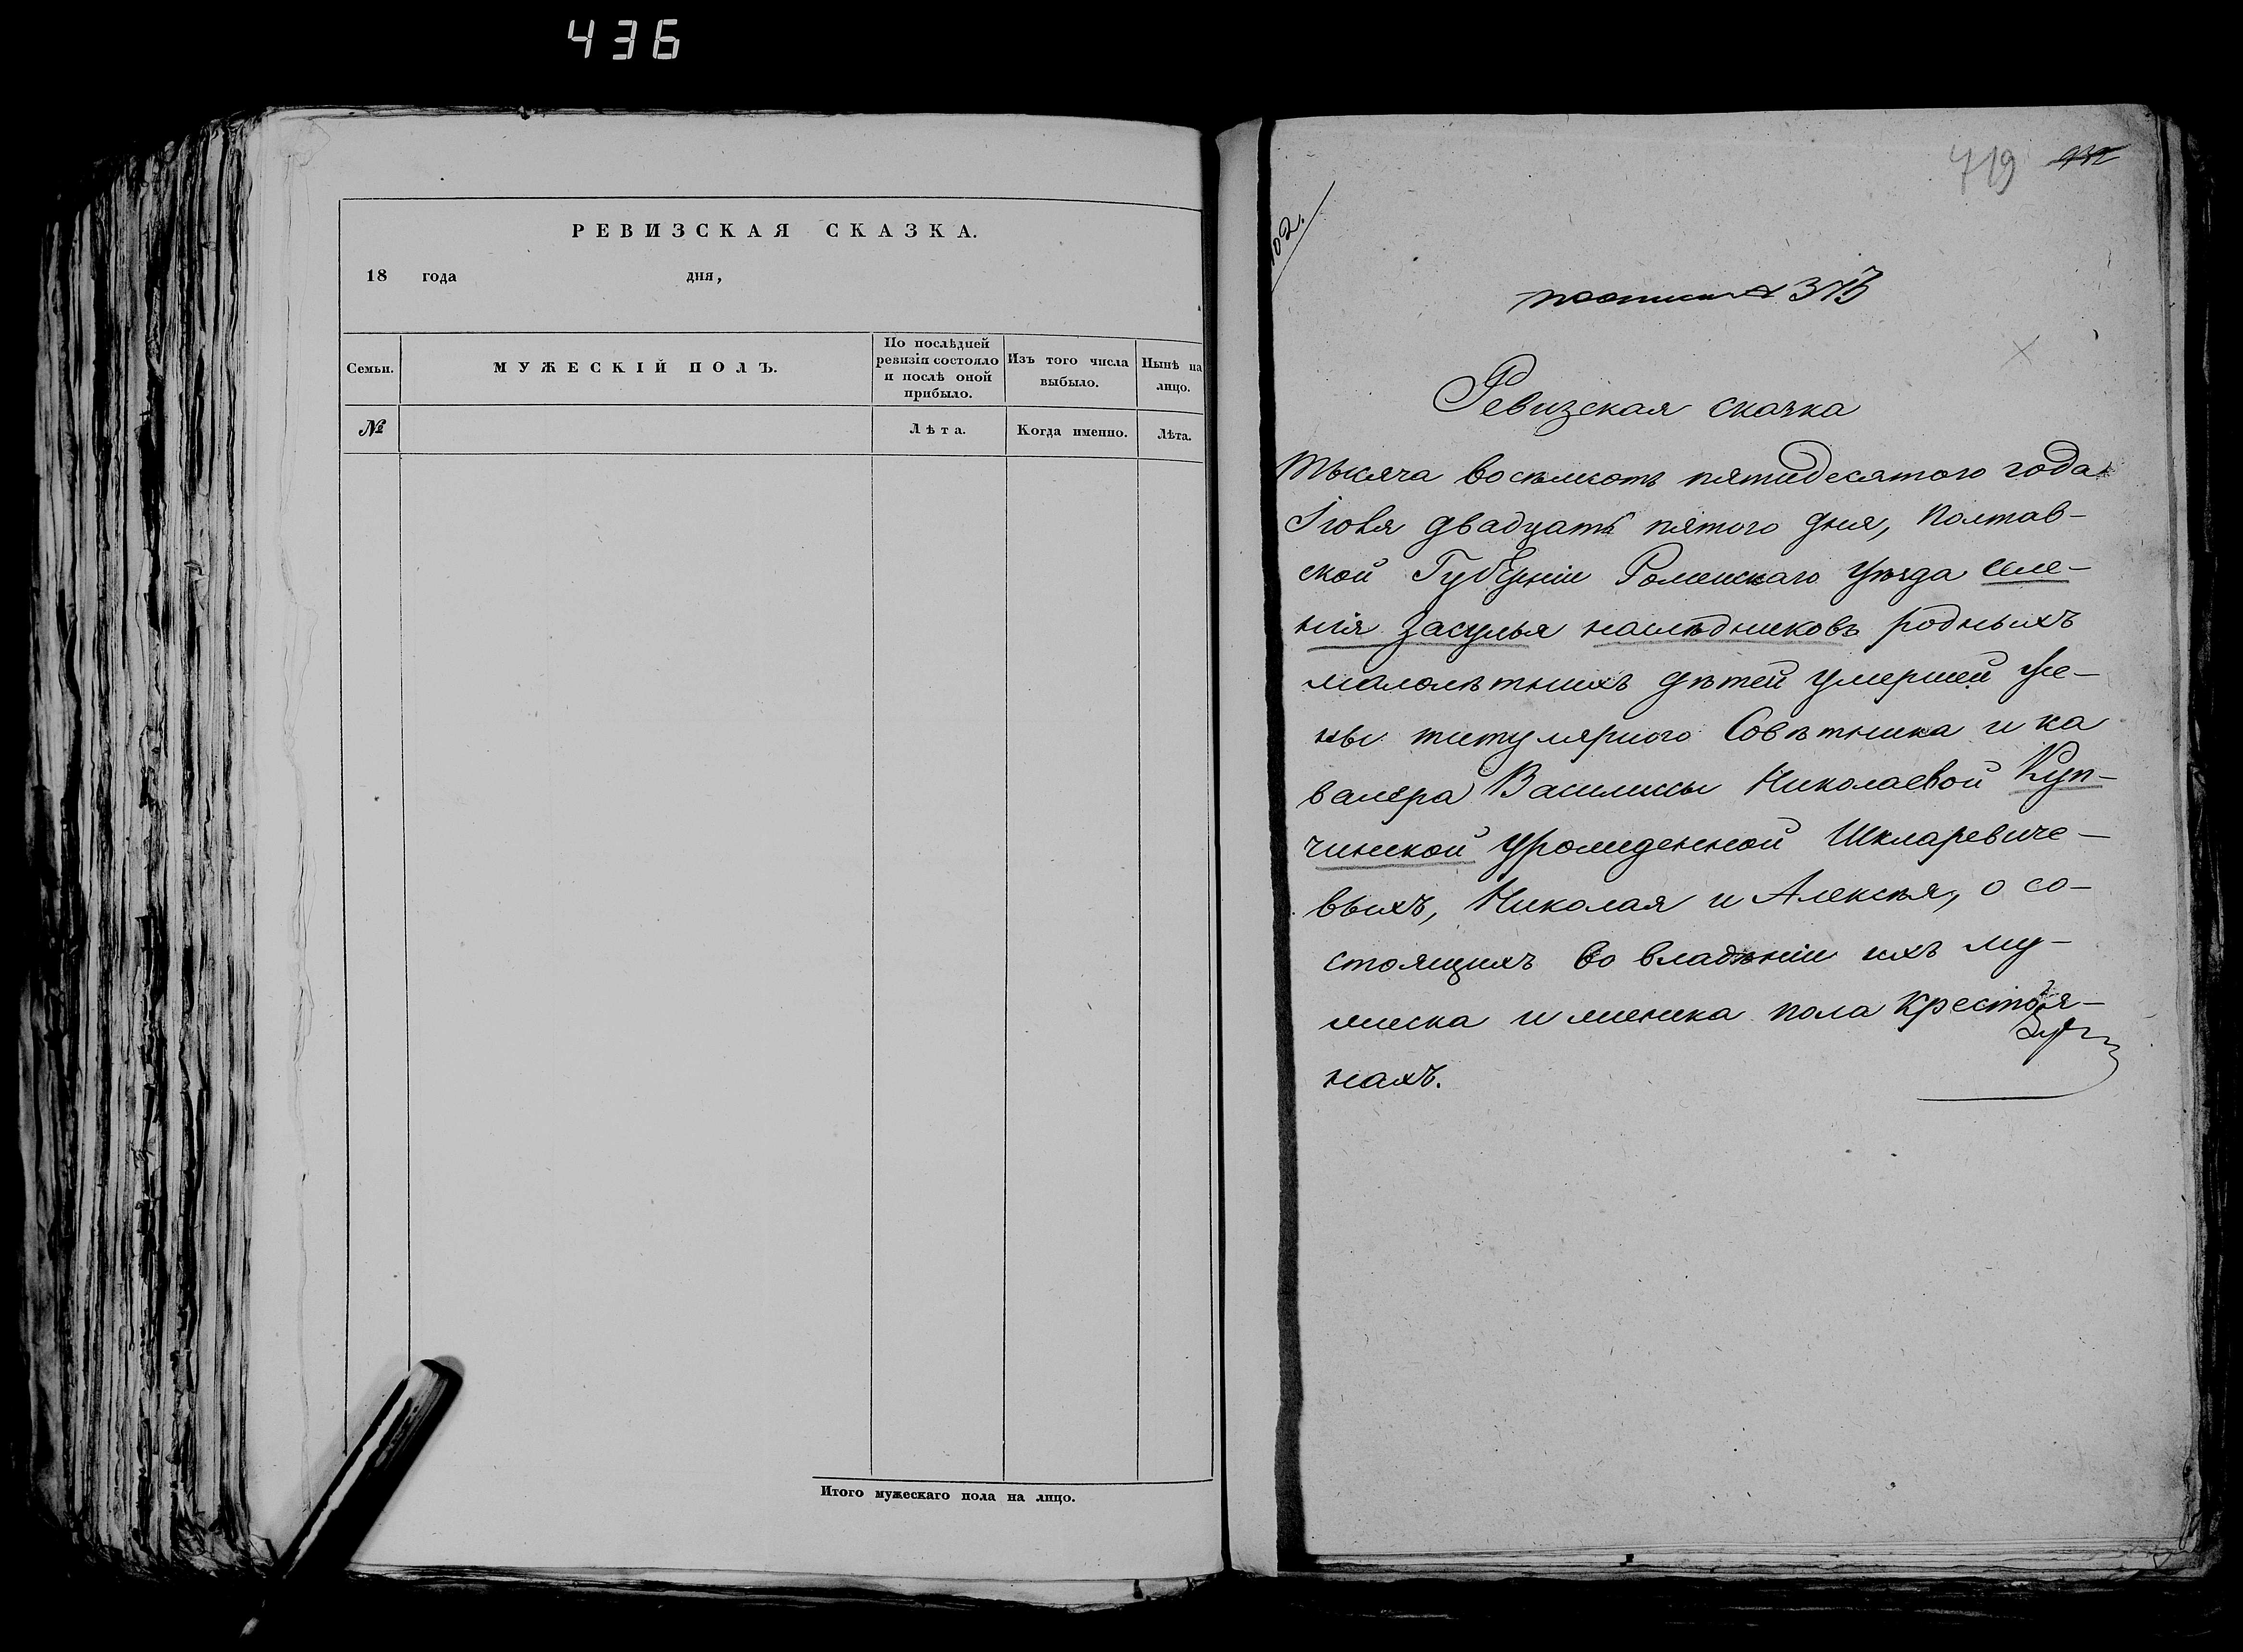 436
РЕВИЗСКАЯ СКАЗКА.
18 года дня,
Семьи.
МУЖЕСКІЙ ПОЛЪ.
По послѣдней
ревизіи состояло
и послѣ оной
прибыло.
Изъ того числа
выбыло.
Нынѣ на
лицо.
№
Лѣта.
Когда именно.
Лѣта.
Итого мужескаго пола на лицо.
102.
719
по описи
Ревизская сказка
Тысяча восемьсотъ пятидесятого года
Іюня двадцать пятого дня, Полтав-
ской Губерніи Роменскаго Уѣзда селе-
нія Засулья наслѣдниковъ родныхъ
малолѣтнихъ дѣтей умершей же-
ны титулярного Совѣтника и ка
валера Василисы Николаевой Куп-
чинской урожденной Шкларевиче-
выхъ, Николая и Алексѣя, о со-
стоящихъ во владѣніи ихъ му-
жеска и женска пола крестья-
нахъ.